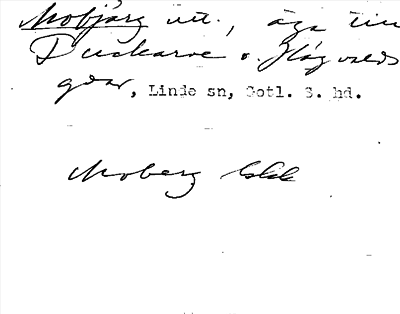 Mobjärg utt., äga till
Duckarve o. Högvalds
gdar, Linde sn, Gotl. S. hd.
Moberg